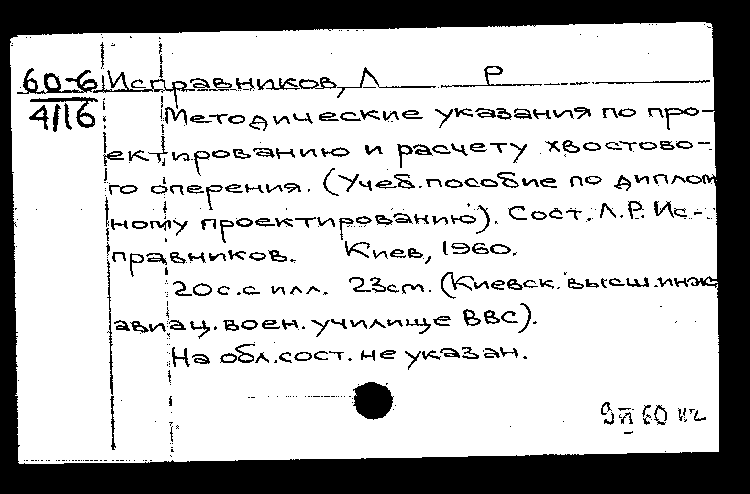 60-6 Исправников, Л Р
4116 Методические указания по про-
ектированию и расчету хвостово-
го оперения. (Учеб. пособие по диплом
ному проектированию). Сост. Л.Р. Ис-
правников. Киев, 1960.
20с. с илл. 23cm. (Киевск. высш. инж
авиац. воен. училище ВВС).
На обл. сост. не указан.
9 VI 60